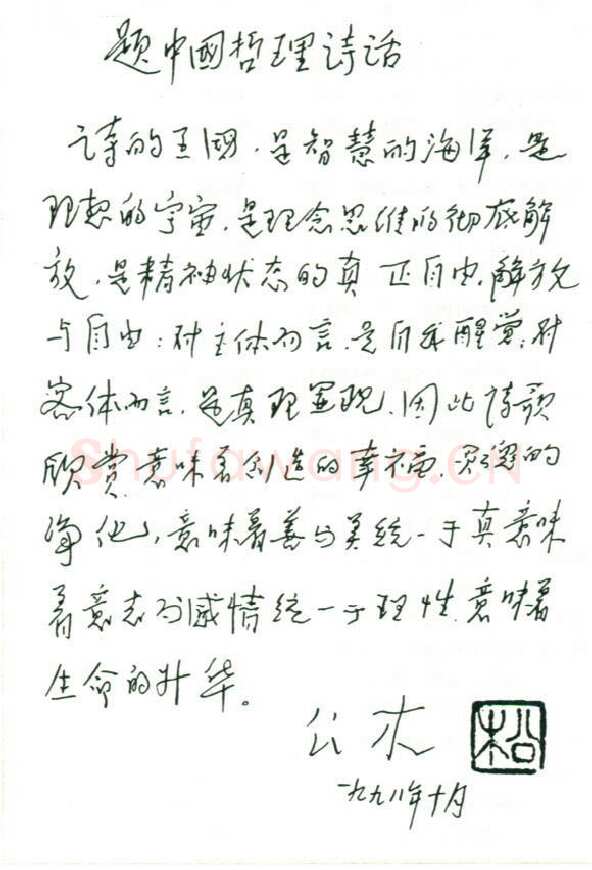 题中國哲理诗话
诗的王國，是智慧的海洋，是
理想的宇宙，是理念思维的彻底解
放，是精神状态的真正自由。解放
与自由：对主体而言，是自我醒觉；对
客体而言，是真理显现。因此诗歌
欣赏，意味着创造的幸福，灵魂的
净化，意味着善与美统一于真，意味
着意志与感情统一于理性，意味着
生命的升华。
公木
松
一九九八年十月
Shufawang.CN